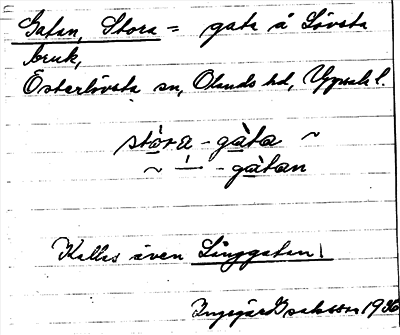 Gatan, Stora = gata å Lövsta
bruk,
Österlövsta sn, Olands hd, Uppsala l.
stòra - gàta ~
~ -"- - gàtan
Kallas även Långgatan
Ingegär Isaksson 1936